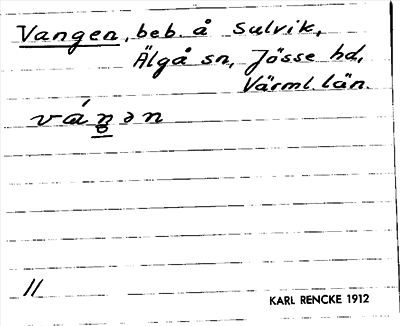 Vangen, beb. å Sulvik,
Älgå sn, Jösse hd,
Värml. län.
váŋən
11
KARL RENCKE 1912